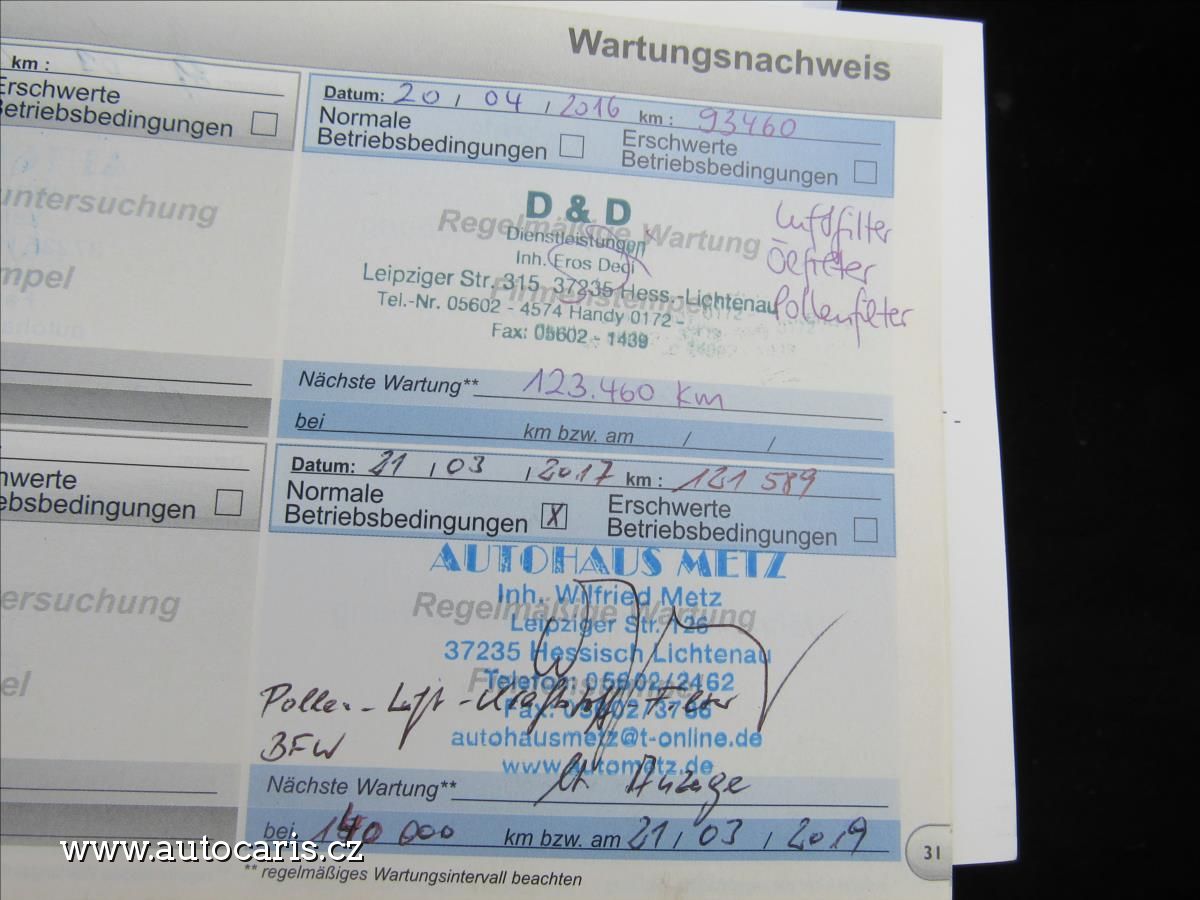 Wartungsnachweis
km :
Erschwerte
Betriebsbedingungen
untersuchung
mpel
Datum: 20 / 04 / 2016 km : 93460
Normale
Betriebsbedingungen
Erschwerte
Betriebsbedingungen
Regelmäßige Wartung
Firmenstempel
D & D
Dienstleistungen
Inh. Eros Dedi
Leipziger Str. 315 37235 Hess.-Lichtenau
Tel.-Nr. 05602 - 4574 Handy 0172 -
Fax: 05602 - 1439
Luftfilter
Ölfilter
Pollenfilter
Nächste Wartung** 123.460 km
bei km bzw. am / /
nwerte
ebsbedingungen
ersuchung
el
Datum: 21 / 03 / 2017 km : 121 589
Normale
Betriebsbedingungen X
Erschwerte
Betriebsbedingungen
AUTOHAUS METZ
Inh. Wilfried Metz
Regelmäßige Wartung
Leipziger Str. 126
37235 Hessisch Lichtenau
Telefon 05602/2462
Pollen-Luft-Kraftstoff-Filter
Fax: 05602/3766
BFW
autohausmetz@t-online.de
www.autometz.de
Nächste Wartung** lt Anzeige
bei 140 000 km bzw. am 21 / 03 / 2019
** regelmäßiges Wartungsintervall beachten
31
www.autocaris.cz